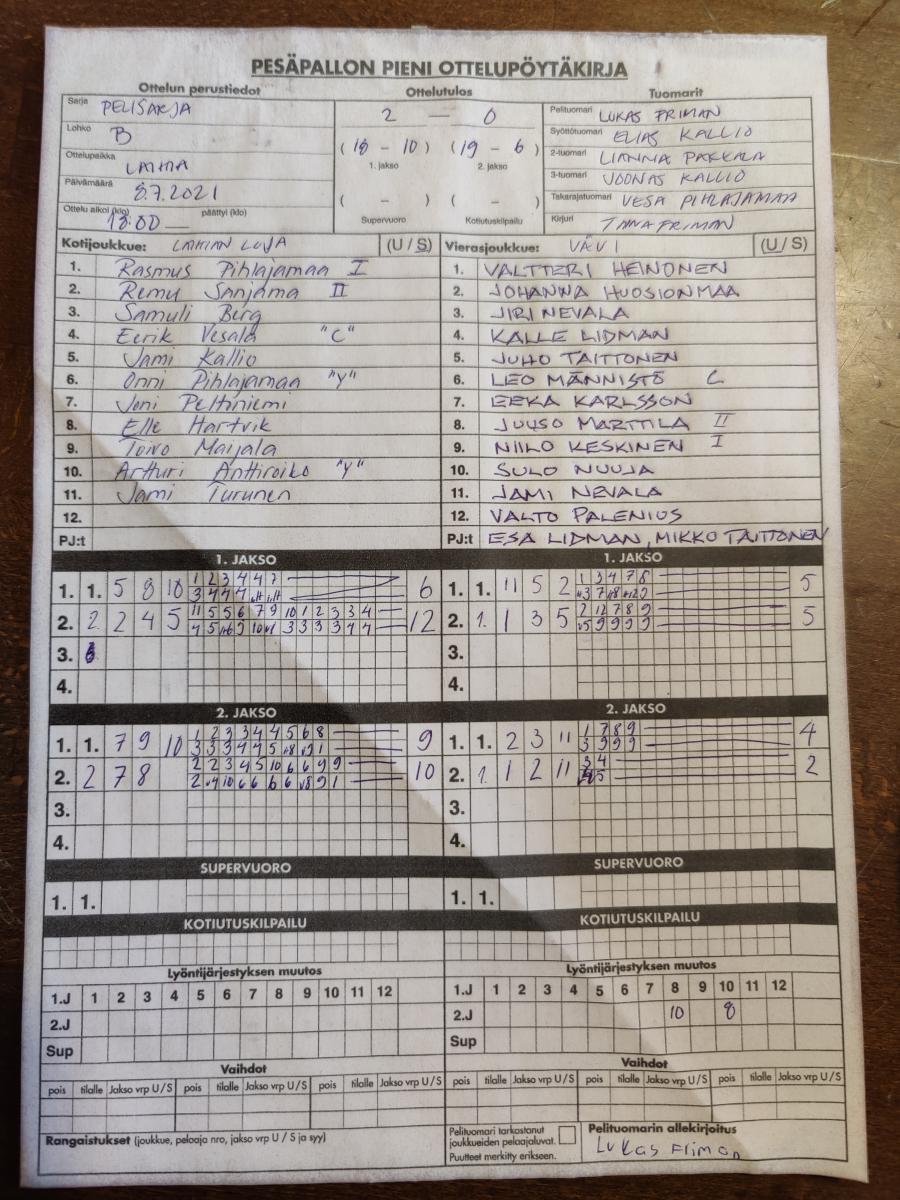 PESÄPALLON PIENI OTTELUPÖYTÄKIRJA
Ottelun perustiedot Ottelutulos Tuomarit
Sarja PELISARJA 2 — 0 Pelituomari LUKAS FRIMAN
Lohko B Syöttötuomari ELIAS KALLIO
(18 - 10) (19 - 6)
1. jakso 2. jakso
Ottelupaikka LAIHIA 2-tuomari LIANNA PAKKALA
Päivämäärä 8.7.2021 3-tuomari JOONAS KALLIO
( - ) ( - )
Takarajatuomari VESA PIHLAJAMAA
Ottelu alkoi (klo) 18:00 päättyi (klo) Supervuoro Kotiutuskilpailu Kirjuri TAINA FRIMAN
Kotijoukkue: LAIHIAN LUJA (U / S) Vierasjoukkue: VÄVI (U / S)
1. Rasmus Pihlajamaa I 1. VALTTERI HEINONEN
2. Remu Sanjama II 2. JOHANNA HUOSIONMAA
3. Samuli Berg 3. JIRI NEVALA
4. Eerik Vesala "C" 4. KALLE LIDMAN
5. Jami Kallio 5. JUHO TAITTONEN
6. Onni Pihlajamaa "Y" 6. LEO MÄNNISTÖ C
7. Joni Peltiniemi 7. EEKA KARLSSON
8. Elle Hartvik 8. JUUSO MARTTILA II
9. Toivo Maijala 9. NIILO KESKINEN I
10. Artturi Anttiroiko "Y" 10. SULO NUUJA
11. Jami Turunen 11. JAMI NEVALA
12. 12. VALTO PALENIUS
PJ:t PJ:t ESA LIDMAN, MIKKO TAITTONEN
1. JAKSO 1. JAKSO
1. 1. 5 8 10 1 2 3 4 4 7 6 1. 1. 11 5 2 1 3 4 7 8 5
2. 2 2 4 5 11 5 5 6 7 9 10 1 2 3 3 4 12 2. 1. 1 3 5 2 12 7 8 9 5
3. 3.
4. 4.
2. JAKSO 2. JAKSO
1. 1. 7 9 10 1 2 3 3 4 4 5 6 8 9 1. 1. 2 3 11 1 7 8 9 4
3 3 3 4 4 5 3 9 9 9
2. 2 7 8 2 2 3 4 5 10 6 6 9 9 10 2. 1. 1 2 11 3 4 2
3. 3.
4. 4.
SUPERVUORO SUPERVUORO
1. 1. 1. 1.
KOTIUTUSKILPAILU KOTIUTUSKILPAILU
Lyöntijärjestyksen muutos Lyöntijärjestyksen muutos
1.J 1 2 3 4 5 6 7 8 9 10 11 12 1.J 1 2 3 4 5 6 7 8 9 10 11 12
2.J 2.J 10 8
Sup Sup
Vaihdot Vaihdot
pois tilalle Jakso vrp U / S pois tilalle Jakso vrp U / S pois tilalle Jakso vrp U / S pois tilalle Jakso vrp U / S pois tilalle Jakso vrp U / S pois tilalle Jakso vrp U / S
Rangaistukset (joukkue, pelaaja nro, jakso vrp U / S ja syy)
Pelituomari tarkastanut joukkueiden pelaajaluvat.
Puutteet merkitty erikseen.
Pelituomarin allekirjoitus
Lukas Friman